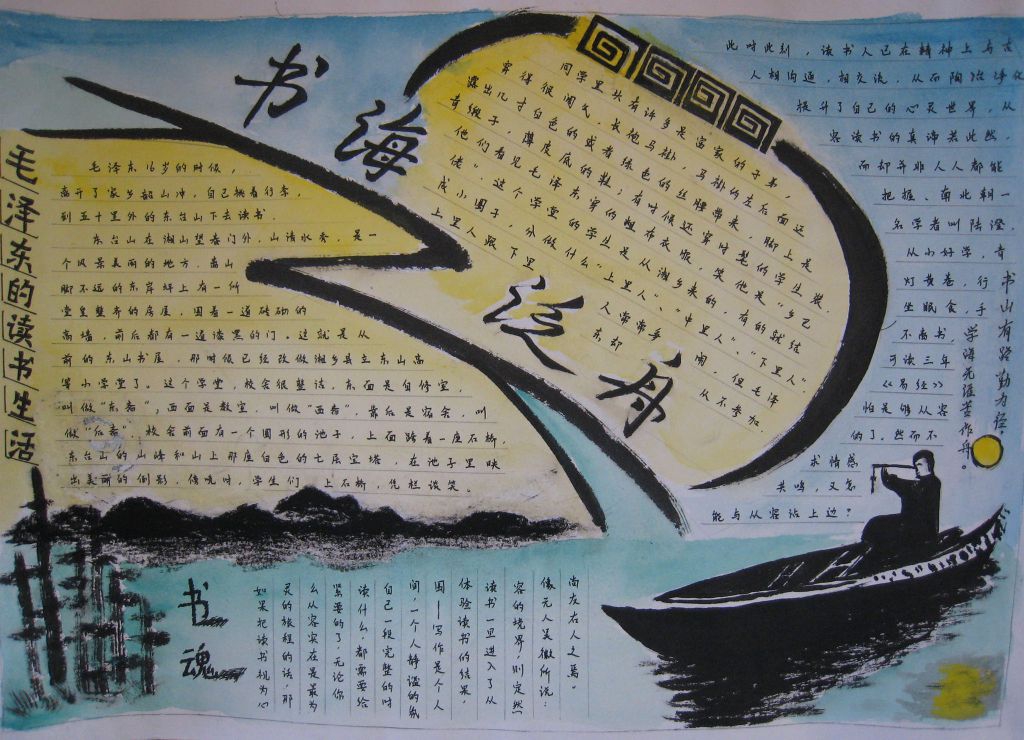 书海泛舟
毛泽东的读书生活
毛泽东16岁的时候，
离开了家乡韶山冲，自己挑着行李，
到五十里外的东台山下去读书．
东台山在湘山望春门外，山清水秀，是一
个风景美丽的地方．离山
脚不远的东岸坪上有一所
堂皇整齐的房屋，围着一道砖砌的
高墙，前后都有一道漆黑的门。这就是从
前的东山书屋．那时候已经改做湘乡县立东山高
等小学堂了。这个学堂，校舍很整洁，东面是自修室，
叫做“东斋”，西面是教室，叫做“西斋”，靠后是宿舍，叫
做“后斋”．校舍前面有一个圆形的池子，上面跨着一座石桥，
东台山的山峰和山上那座白色的七层宝塔，在池子里映
出美丽的倒影，傍晚时，学生们 上石桥，凭栏谈笑。
同学里头有许多是富家的子弟，
穿得很阔气．长袍马褂，马褂的左后面还
露出几寸白色的或者绿色的丝腰带来，脚上是
奇缎子，薄底的鞋；有时候还穿时髦的学生装，
他们看见毛泽东穿的粗布衣服，笑他是“乡巴
佬”．这个学堂的学生是从湘乡来的，有的就结
成小圈子，分做什么“上里人”、“中里人”、“下里人”
上里人跟下里
人常常争闹，但毛泽
东却从不参加．
此时此刻，读书人已在精神上与古
人相沟通，相交流，从而陶冶净化
提升了自己的心灵世界，从
容读书的真谛若此然，
而却并非人人都能
把握．南北朝一
名学者叫陆澄，
从小好学，青
灯黄卷，行
坐眠食，手
不离书，
可读三年
《易经》
怕是够从容
的了，然而不
求情感
共鸣，又怎
能与从容沾上边？
书山有路勤为径，
学海无涯苦作舟。
书魂
如果把读书视为心
灵的旅程的话，那
么从容实在是最为
紧要的了，无论你
读什么，都需要给
自己一段完整的时
间，一个人静谧的氛
围——写作是个人
体验读书的结果，
读书一旦进入了从
容的境界，则定然
像元人吴徽所说：
尚友古人之爲。